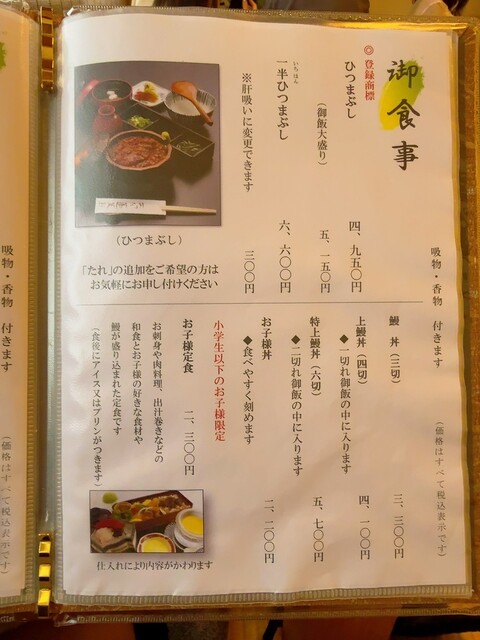 御食事
吸物・香物 付きます
◎登録商標
ひつまぶし 四、九五〇円
(御飯大盛り) 五、一五〇円
いちはん
一半ひつまぶし 六、六〇〇円
※肝吸いに変更できます 三〇〇円
(ひつまぶし)
「たれ」の追加をご希望の方は
お気軽にお申し付けください
(価格はすべて税込表示です)
鰻 丼(三切) 三、三〇〇円
上鰻丼(四切) 四、一〇〇円
◆一切れ御飯の中に入ります
特上鰻丼(六切) 五、七〇〇円
◆二切れ御飯の中に入ります
お子様丼 二、二〇〇円
◆食べやすく刻めます
小学生以下のお子様限定
お子様定食 二、三〇〇円
お刺身や肉料理、出汁巻きなどの
和食とお子様の好きな食材や
鰻が盛り込まれた定食です
(食後にアイス又はプリンがつきます)
仕入れにより内容がかわります
吸物・香物 付きます
(価格はすべて税込表示です)